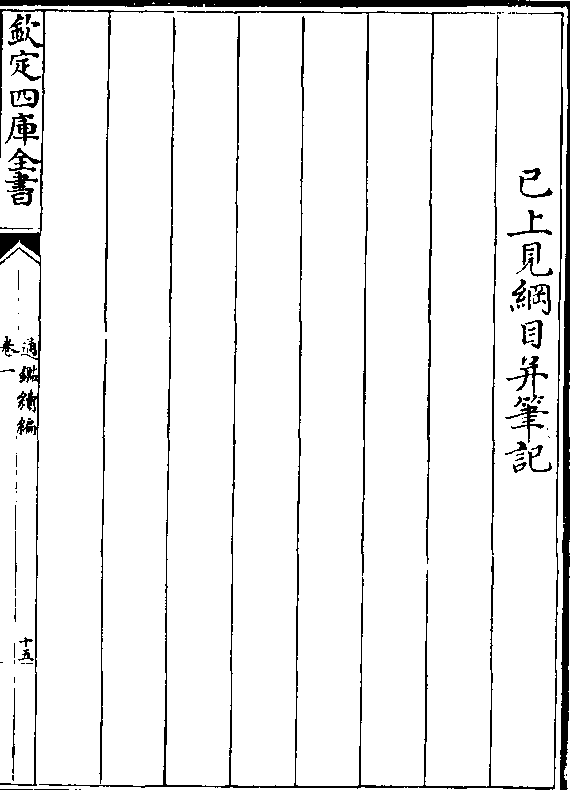 已上見綱目并筆記
欽定四庫全書
通鑑續編
卷一
十五